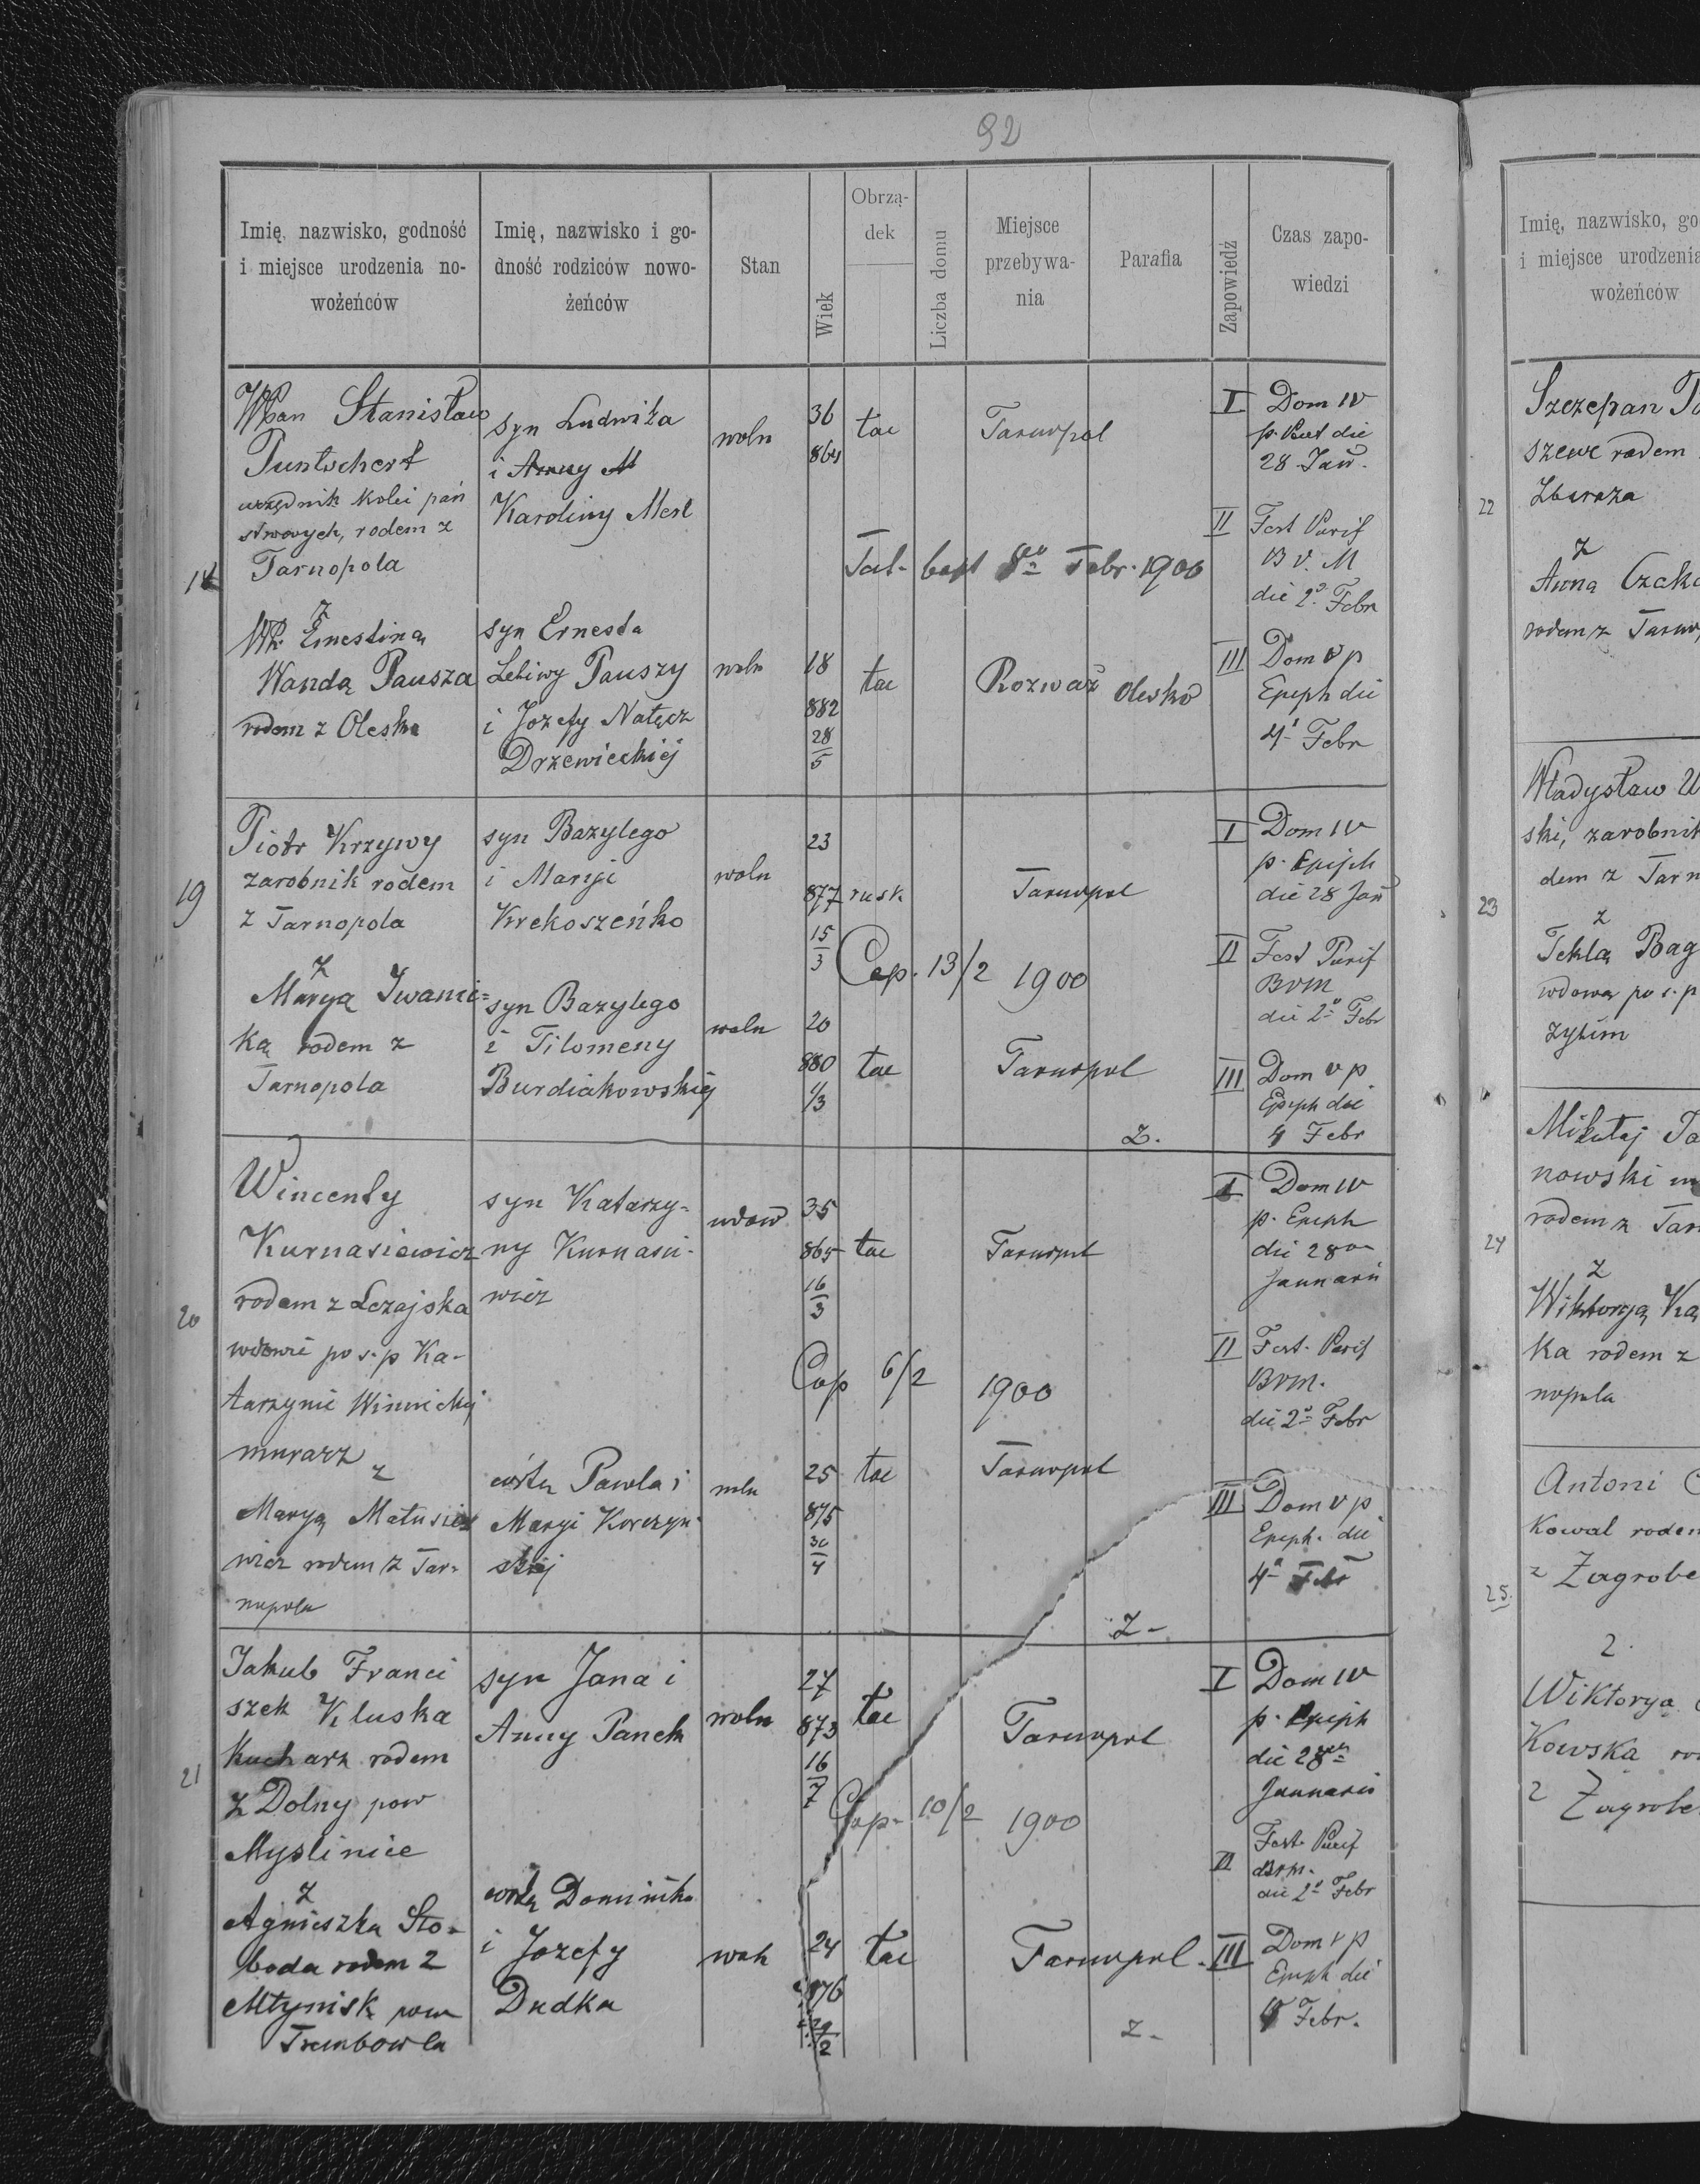 92
Imię, nazwisko, godność
i miejsce urodzenia no-
wożeńców
Imię, nazwisko i go-
dność rodziców nowo-
żeńców
Stan
Wiek
Obrzą-
dek
Liczba domu
Miejsce
przebywa-
nia
Parafia
Zapowiedź
Czas zapo-
wiedzi
WPan Stanisław
Puntschert
urzędnik kolei pań
stwowych, rodem z
Tarnopola
syn Ludwika
i Anny M
Karoliny Merl
woln
36
864
łac
Tarnopol
I Dom IV
p. die
28 Jan.
II Fest Purif
B V. M
die 2° Febr
Febr. 1900
z
WP. Ernestiną
Wandą Pausza
rodem z Oleska
syn Ernesta
Pauszy
i Jozefy Natęcz
Drzewieckiej
woln
18
882
28
5
łac
Rozważ
Olesko
III Dom V p
Epiph die
4 Febr
19
Piotr Krzywy
zarobnik rodem
z Tarnopola
syn Bazylego
i Maryi
Krekoszeńko
woln
23
877
15
3
rusk.
Tarnopol
I Dom IV
p. Epiph
die 28 Jan
Cop. 13/2 1900
II Fest Purif
BVM
die 2° Febr
z
Maryą Iwanic=
ką rodem z
Tarnopola
syn Bazylego
i Filomeny
Burdiakowskiej
woln
20
880
1/3
łac
Tarnopol
z.
III Dom V p
Epiph die
4 Febr
20
Wincenty
Kurnasiewicz
rodem z Leżajska
wdowiec po s.p Ka-
tarzynie Winnickiej
murarz
syn Katarzy-
ny Kurnasie-
wicz
wdow
35
865
16
3
łac
Tarnopol
I Dom IV
p. Epiph
die 28va
Januarii
Cop 6/2 1900
II Fest. Purif
BVM.
die 2° Febr
z
Maryą Matusie
wicz rodem z Tar-
nopola
córką Pawła i
Maryi Korczyń
skiej
woln
25
875
30
4
łac
Tarnopol
z-
III Dom V p
Epiph. die
4a Febr
21
Jakub Franci
szek Kluska
Kucharz rodem
z Dolny pow
Myslinice
syn Jana i
Anny Panek
woln
27
873
16
7
łac
Tarnopol
I Dom IV
p. Epiph
die 28
Januarii
Cop- 10/2 1900
II Fest. Purif
BVM.
die 2° Febr
z
Agnieszka Sło-
boda rodem z
Młynisk pow
Trembowla
córką Dominika
i Jozefy
Dudka
woln
24
876
2
łac
Tarnopol.
z-
III Dom V p
Epiph die
4 Febr.
Imię, nazwisko, go
i miejsce urodzenia
wożeńców
22
Szczepan
szewc rodem
Zbaraża
z
Anna Czako
rodem z Tarno
23
Władysław
ski, zarobnik
dem z Tarn
z
Teklą Bag
wdową po s.p
24
Mikołaj
nowski
rodem z Tar
z
Wiktoryą Ka
ka rodem z
nopola
25.
Antoni
Kowal rodem
z Zagrobe
z.
Wiktorya
Kowska
z Zagrobe